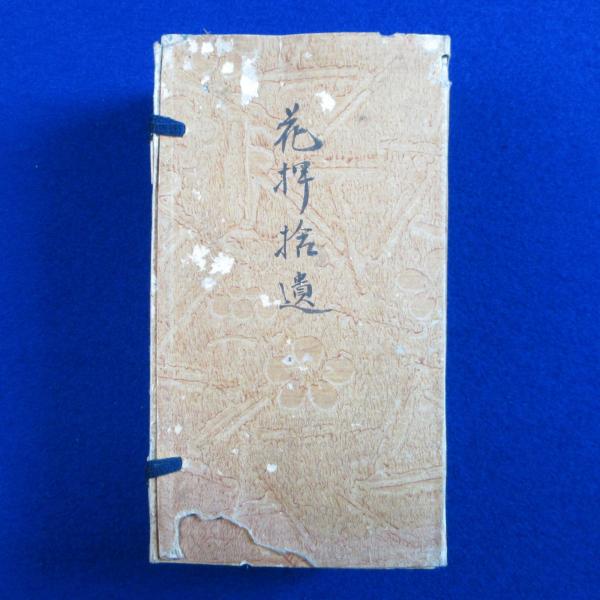 花押拾遺